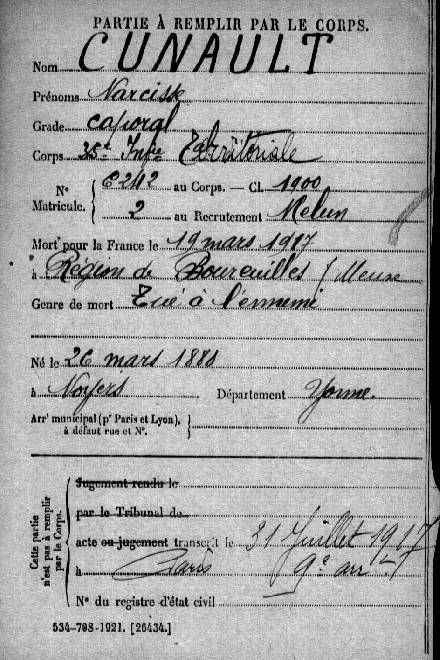 PARTIE À REMPLIR PAR LE CORPS.
Nom CUNAULT
Prénoms Narcisse
Grade caporal
Corps 35e Infie Territoriale
N° 6242 au Corps. — Cl. 1900
Matricule. 2 au Recrutement Melun
Mort pour la France le 19 mars 1917
à Région de Boureuilles (Meuse
Genre de mort Tué à l'ennemi
Né le 26 mars 1880
à Noyers Département Yonne.
Arrt municipal (pr Paris et Lyon),
à défaut rue et N°.
Cette partie
n'est pas à remplir
par le Corps.
Jugement rendu le
par le Tribunal de
acte ou jugement transcrit le 31 Juillet 1917
à Paris 9e arrt
N° du registre d'état civil
534-708-1921. [26434.]